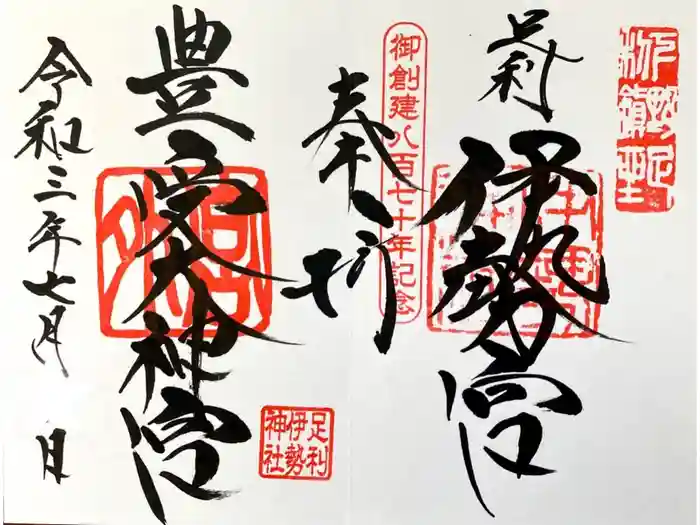 足利
伊勢宮
奉拝
御創建八百七十年記念
豊受大神宮
足利
伊勢
神社
令和三年七月 日